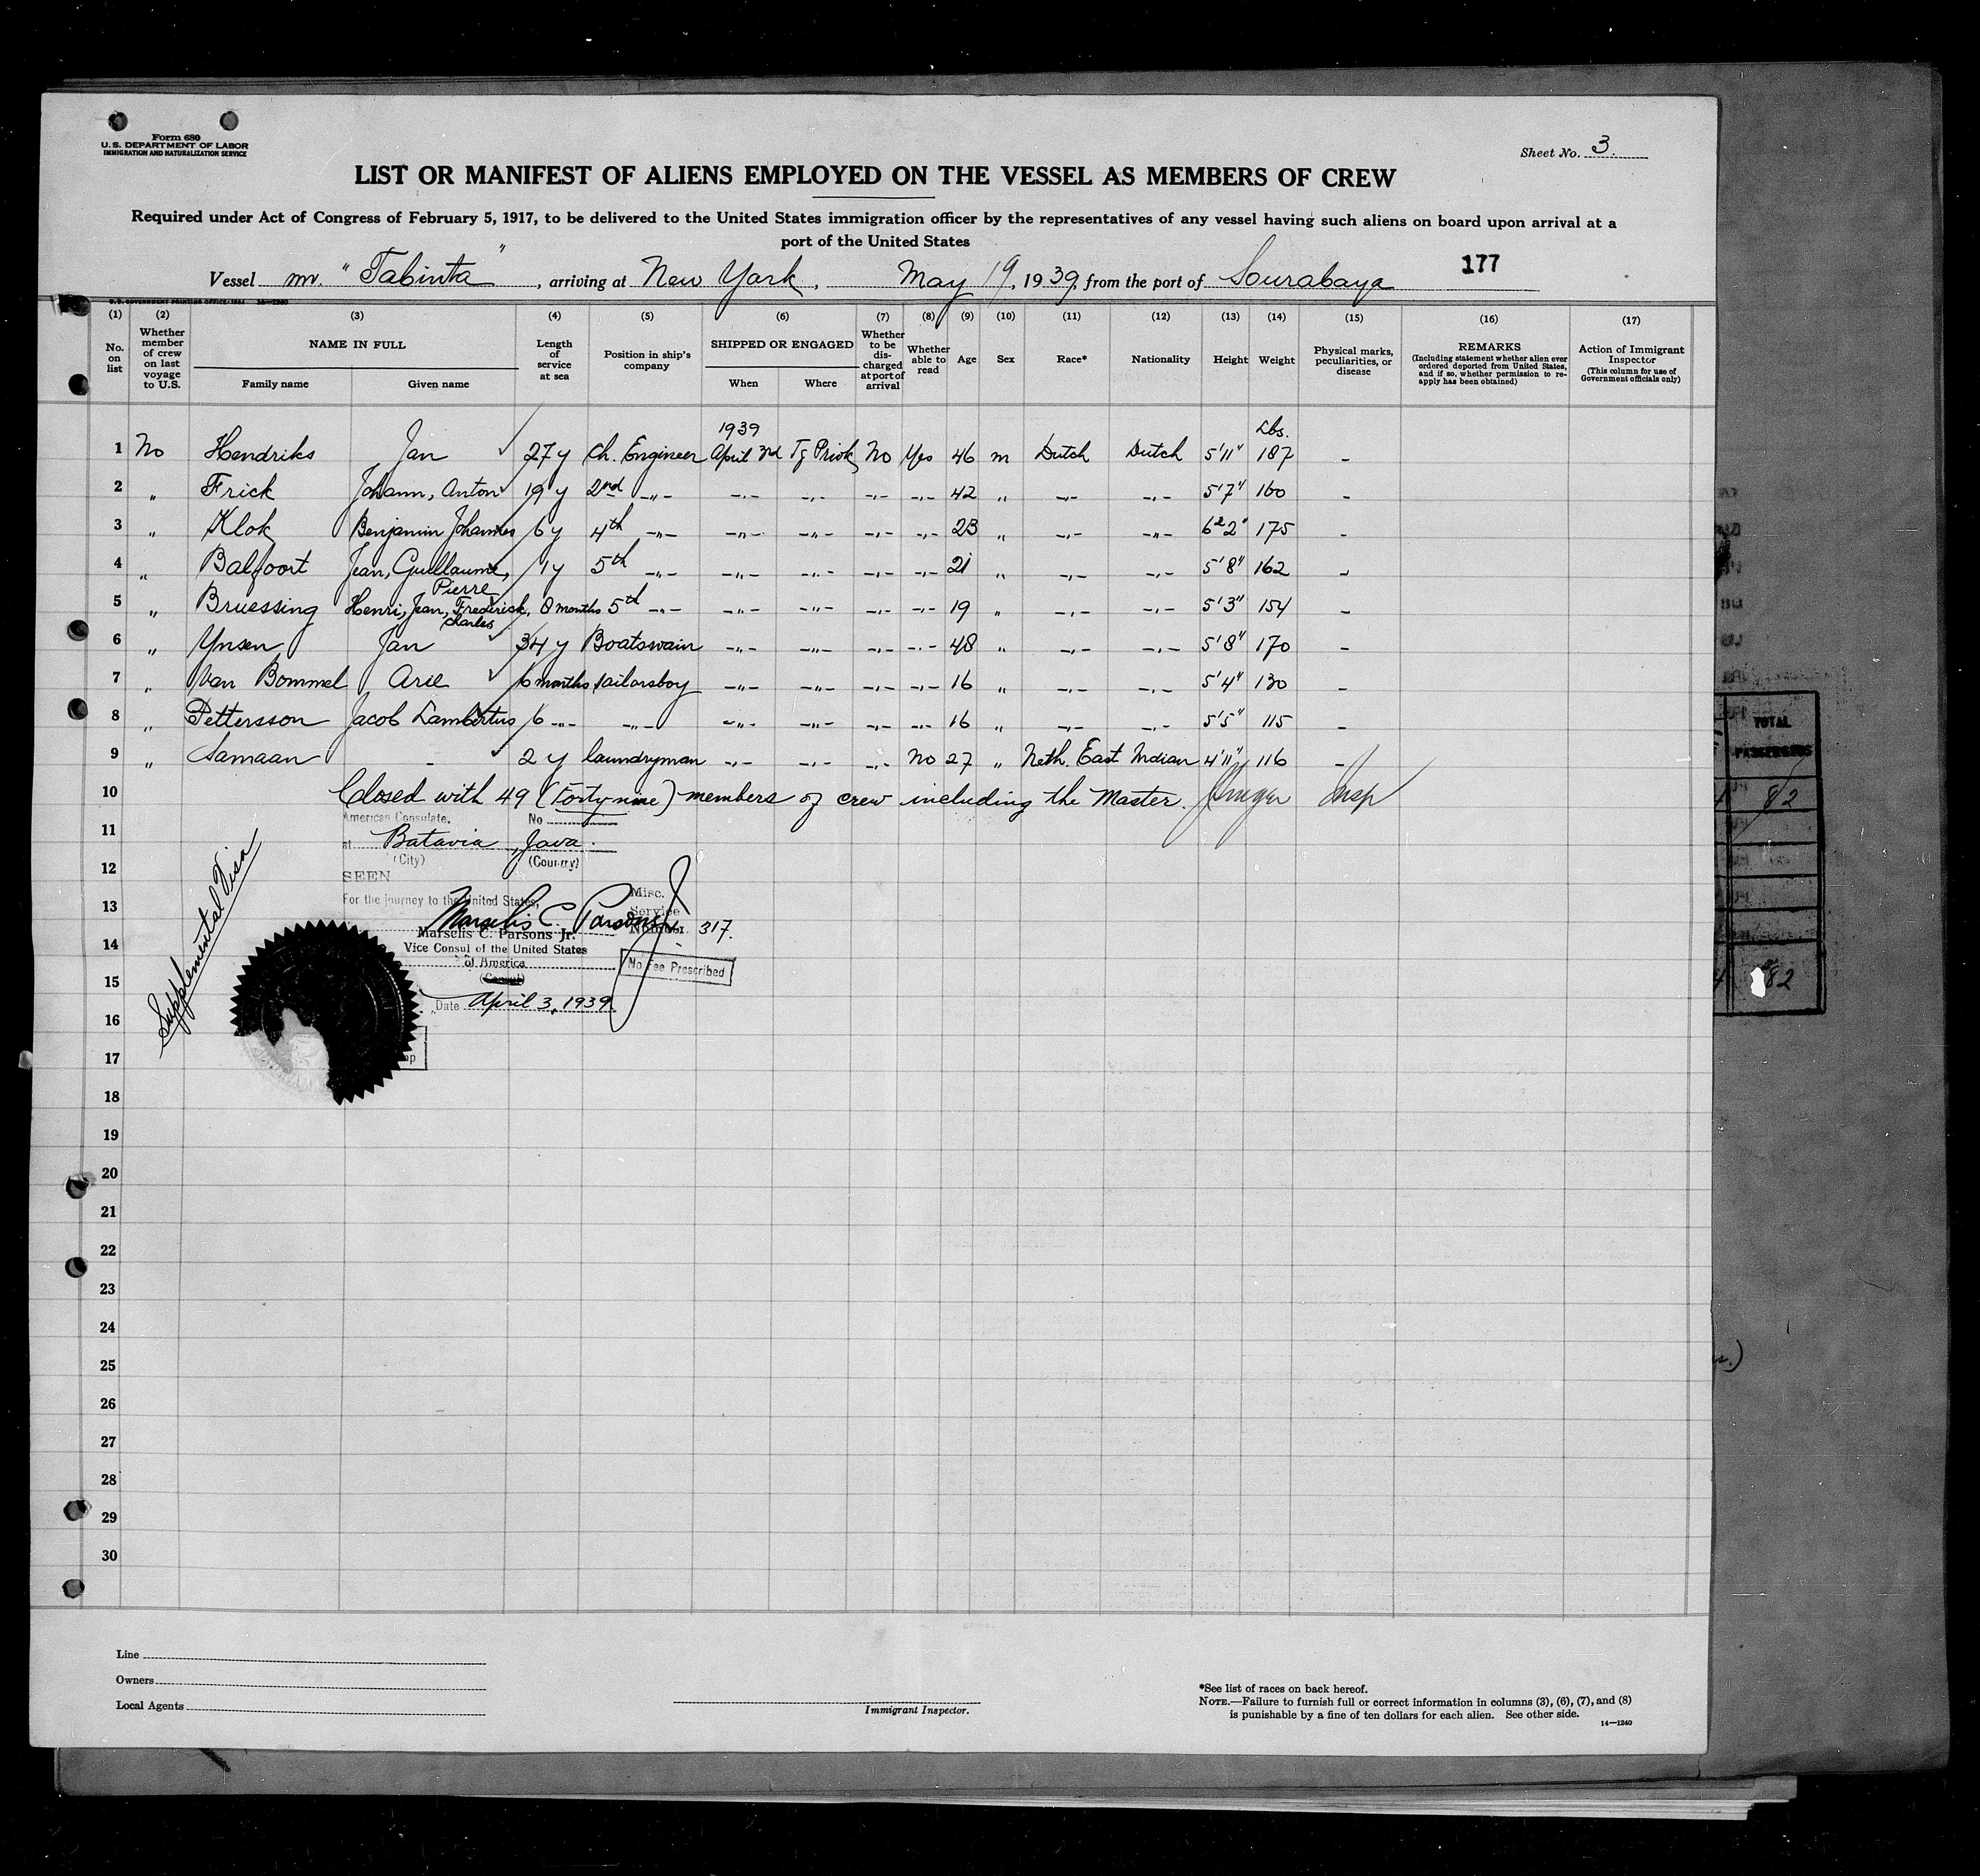 Form 680
U.S. DEPARTMENT OF LABOR
IMMIGRATION AND NATURALIZATION SERVICE
Sheet No. 3.
LIST OR MANIFEST OF ALIENS EMPLOYED ON THE VESSEL AS MEMBERS OF CREW
Required under Act of Congress of February 5, 1917, to be delivered to the United States immigration officer by the representatives of any vessel having such aliens on board upon arrival at a
port of the United States
177
Vessel mv. "Tabinta", arriving at New York, May 19, 1939, from the port of Sourabaya
(1) (2) (3) (4) (5) (6) (7) (8) (9) (10) (11) (12) (13) (14) (15) (16) (17)
No. on list
Whether member of crew on last voyage to U.S.
NAME IN FULL
Family name
Given name
Length of service at sea
Position in ship's company
SHIPPED OR ENGAGED
When
Where
Whether to be discharged at port of arrival
Whether able to read
Age
Sex
Race*
Nationality
Height
Weight
Physical marks, peculiarities, or disease
REMARKS
(Including statement whether alien ever ordered deported from United States, and if so, whether permission to re-apply has been obtained)
Action of Immigrant Inspector
(This column for use of Government officials only)
1939 Lbs.
1 No Hendriks Jan 27 y Ch. Engineer April 3rd Tg Priok No Yes 46 m Dutch Dutch 5'11" 187 -
2 " Frick Johann, Anton 19 y 2nd -"- -"- -"- -"- -"- 42 " -"- -"- 5'7" 160 -
3 " Klok Benjamin Johannes 6 y 4th -"- -"- -"- -"- -"- 23 " -"- -"- 6'2" 175 -
4 " Balfoort Jean, Guillaume, Pierre 1 y 5th -"- -"- -"- -"- -"- 21 " -"- -"- 5'8" 162 -
5 " Bruessing Henri, Jean, Frederick, Charles 8 months 5th -"- -"- -"- -"- -"- 19 " -"- -"- 5'3" 154 -
6 " Ynsen Jan 34 y Boatswain -"- -"- -"- -"- 48 " -"- -"- 5'8" 170 -
7 " Van Bommel Arie 6 months sailorsboy -"- -"- -"- -"- 16 " -"- -"- 5'4" 130 -
8 " Pettersson Jacob Lambertus 6 -"- -"- -"- -"- -"- -"- 16 " -"- -"- 5'5" 115 -
9 " Samaan - 2 y laundryman -"- -"- -"- No 27 " Neth. East Indian 4'11" 116 -
10 Closed with 49 (Forty nine) members of crew including the Master. Insp
American Consulate, No
11
at Batavia, Java.
(City) (Country)
12
SEEN
For the journey to the United States,
13
Marselis C. Parsons Jr.
Misc. Service Number. 317.
Marselis C. Parsons Jr.
14
Vice Consul of the United States
of America
(Consul)
No Fee Prescribed
15
Date April 3, 1939
Supplemental Visa
16
17
18
19
20
21
22
23
24
25
26
27
28
29
30
Line
Owners
Local Agents
Immigrant Inspector.
*See list of races on back hereof.
NOTE.—Failure to furnish full or correct information in columns (3), (6), (7), and (8)
is punishable by a fine of ten dollars for each alien. See other side.
14—1240
TOTAL
PASSENGERS
82
82